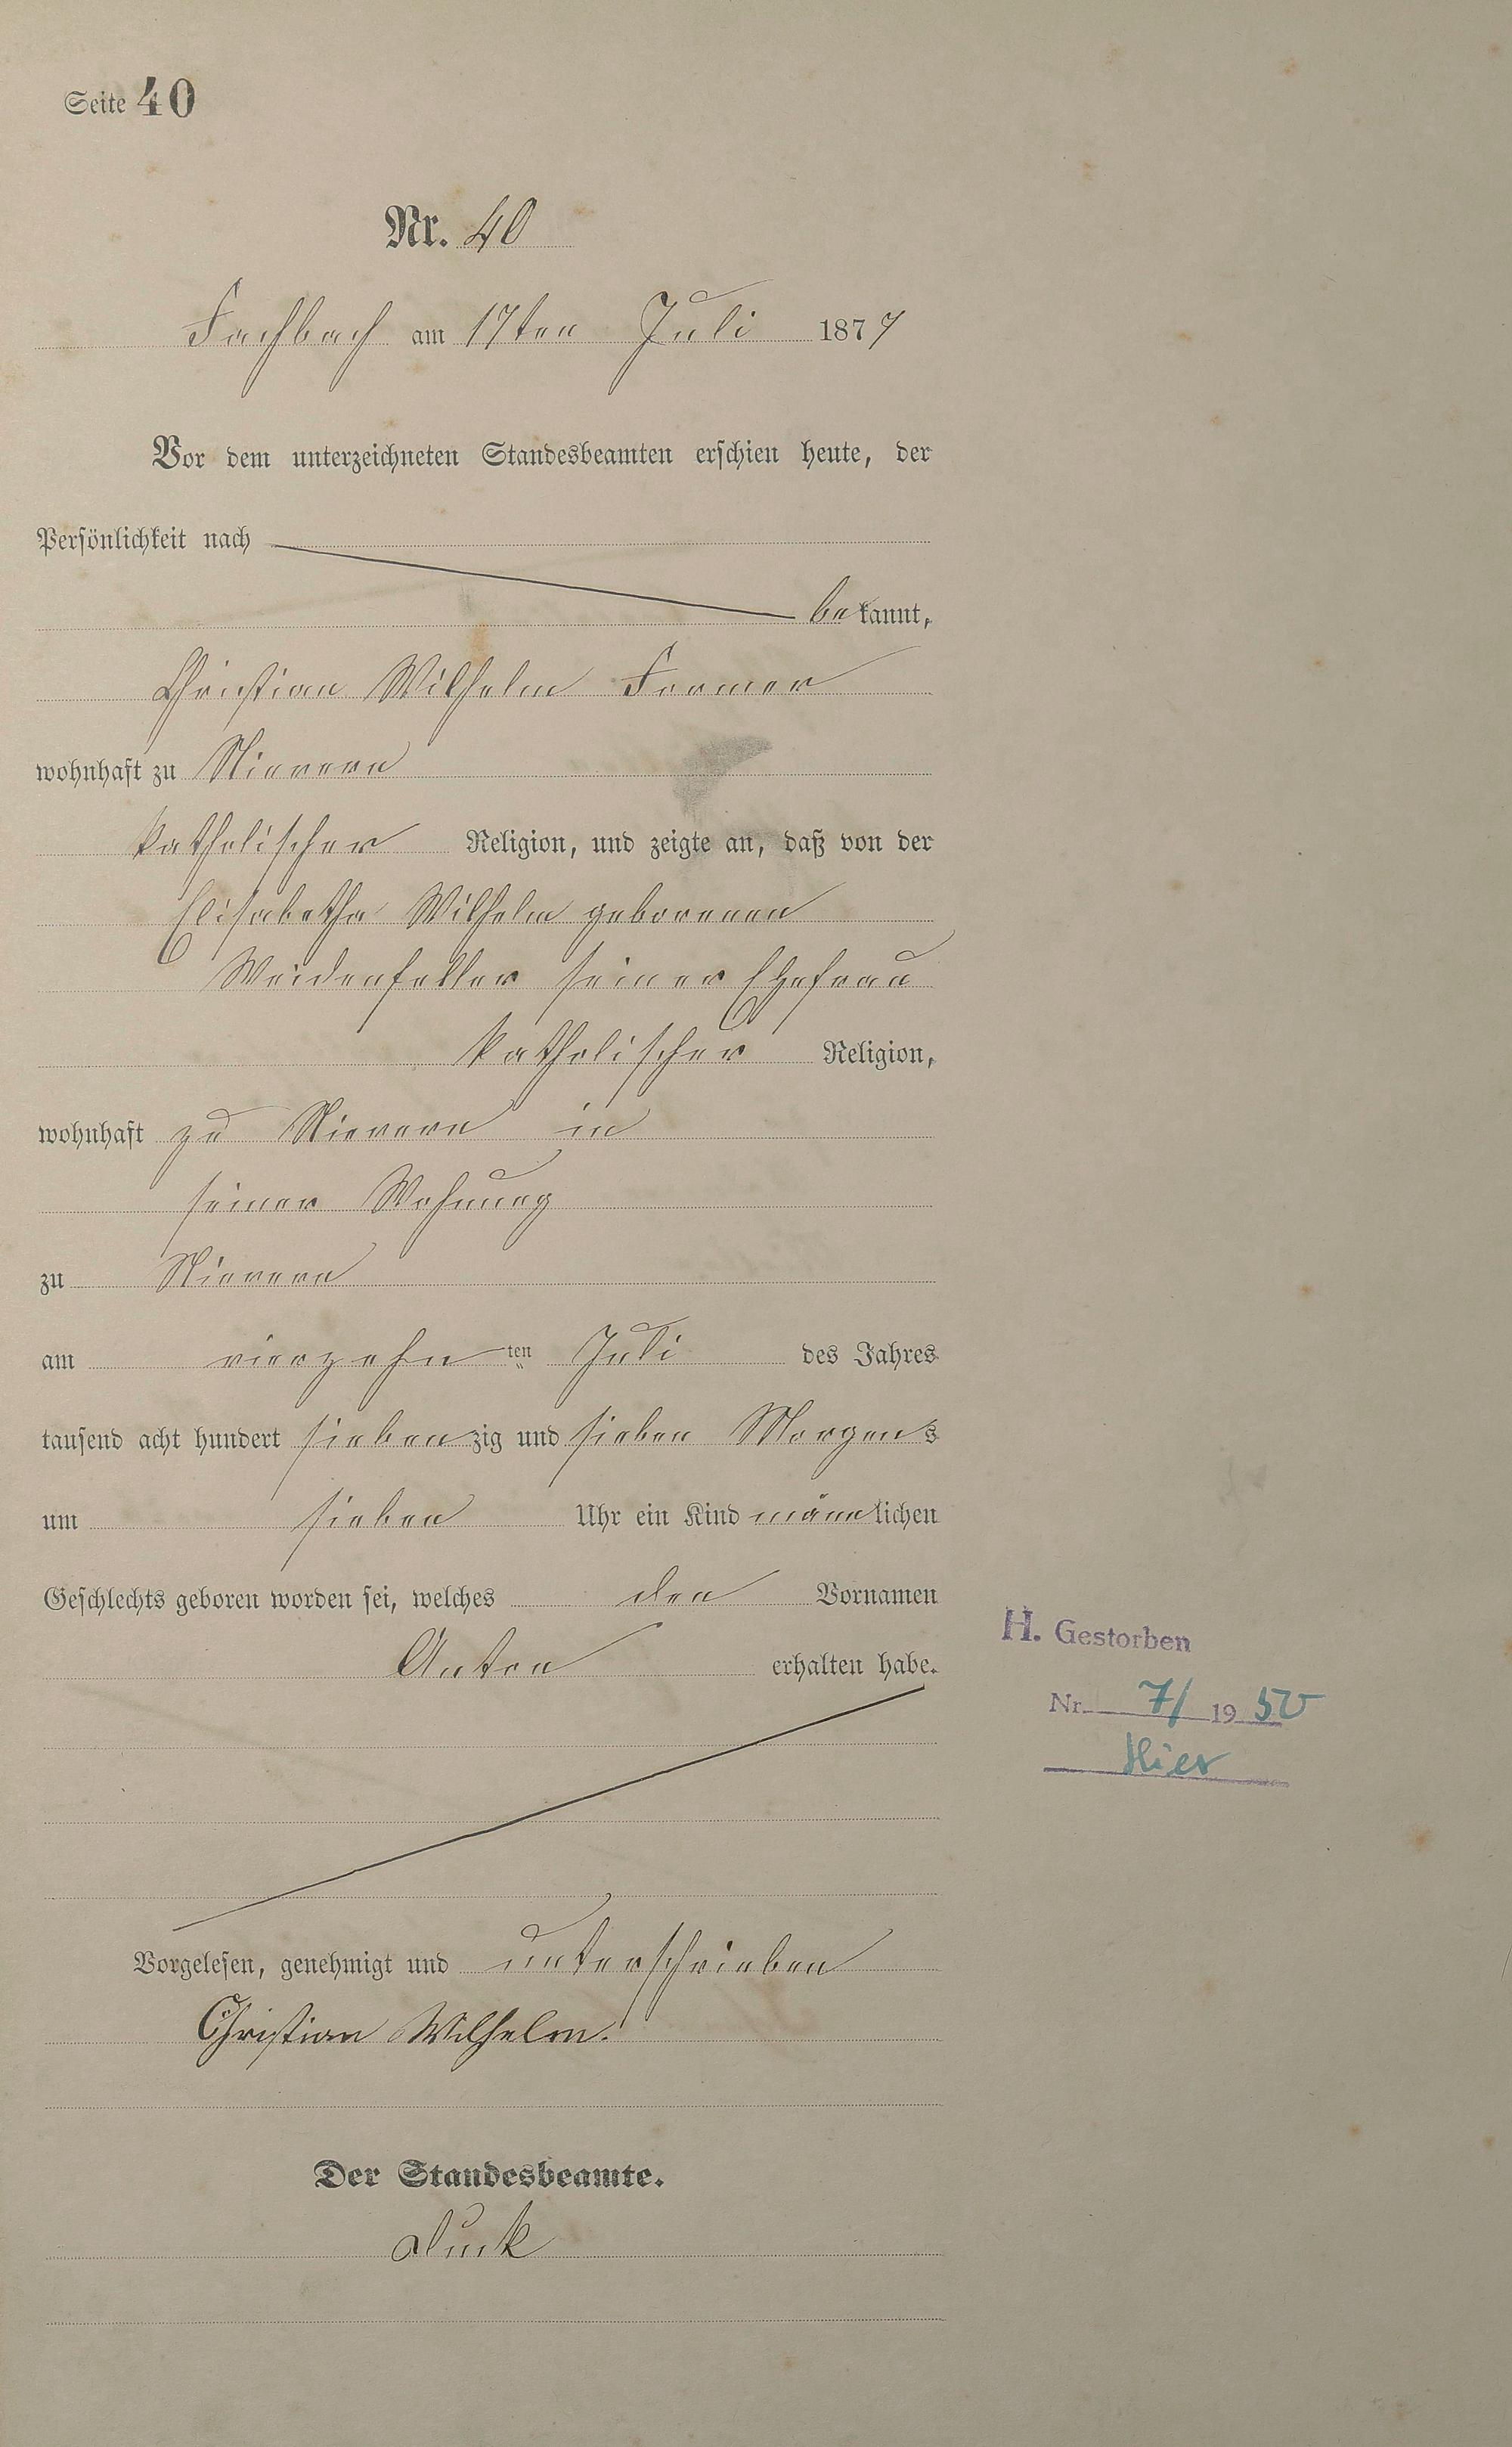 Seite 40
Nr. 40
Fachbach am 17ten Juli 1877
Vor dem unterzeichneten Standesbeamten erschien heute, der
Persönlichkeit nach
bekannt,
Christian Wilhelm Former
wohnhaft zu Nievern
katholischer Religion, und zeigte an, daß von der
Elisabetha Wilhelm geborenen
Weidenfeller seiner Ehefrau
katholischer Religion,
wohnhaft zu Nievern in
seiner Wohnung
zu Nievern
am vierzehnten Juli des Jahres
tausend acht hundert siebenzig und sieben Morgens
um sieben Uhr ein Kind männlichen
Geschlechts geboren worden sei, welches den Vornamen
Anton erhalten habe.
H. Gestorben
Nr. 7/ 1950
Hier
Vorgelesen, genehmigt und unterschrieben
Christian Wilhelm.
Der Standesbeamte.